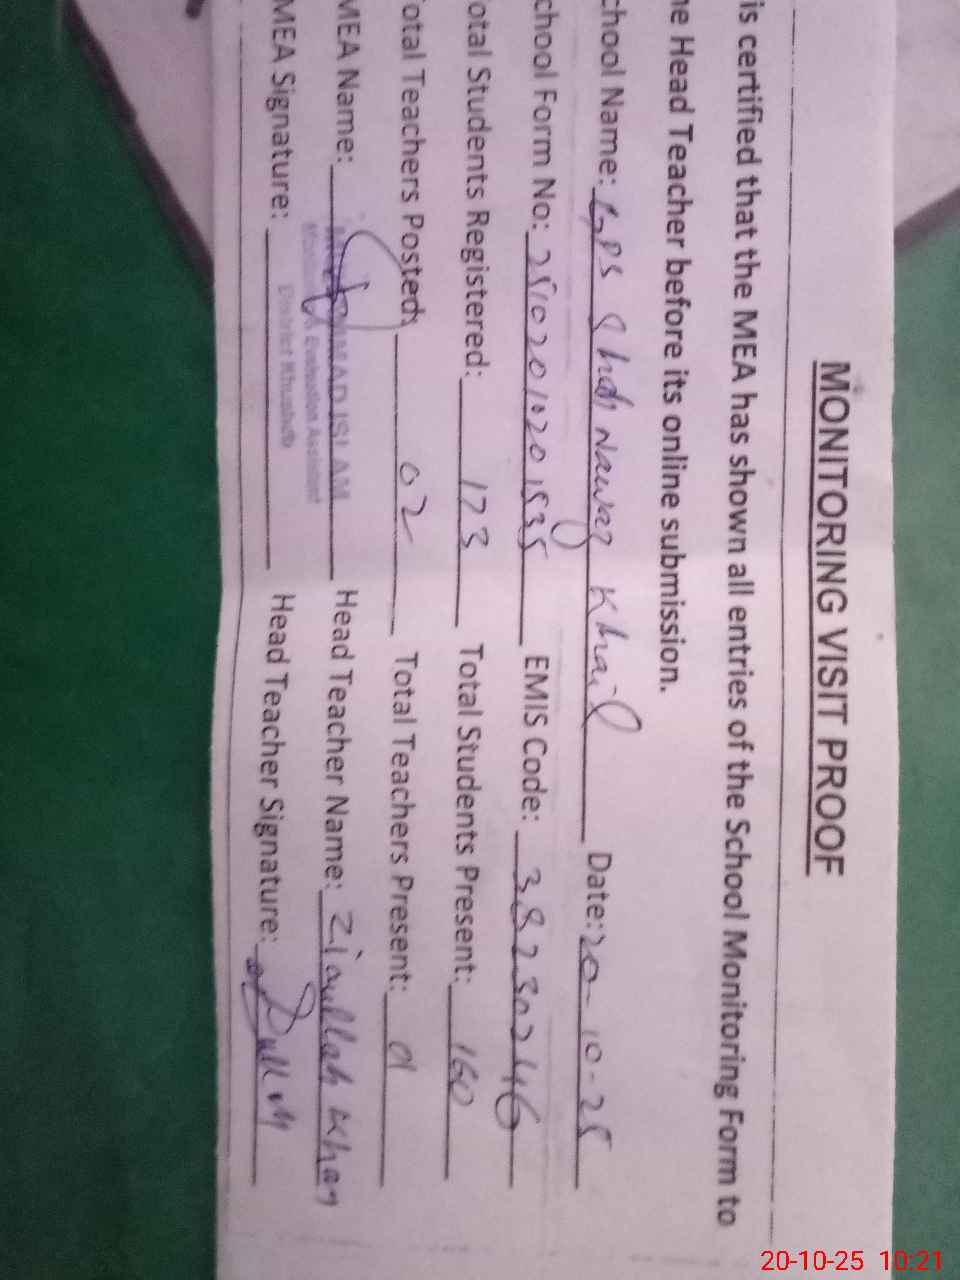 MONITORING VISIT PROOF
is certified that the MEA has shown all entries of the School Monitoring Form to
he Head Teacher before its online submission.
chool Name: GPS Shah Nawaz Khail Date: 20-10-25
chool Form No: 25102010201535 EMIS Code: 38230246
otal Students Registered: 173 Total Students Present: 160
otal Teachers Posted: 02 Total Teachers Present: 01
MEA Name: MUHAMMAD ISLAM Head Teacher Name: Ziaullah Khan
Monitoring & Evaluation Assistant
MEA Signature: District Khushab Head Teacher Signature:
20-10-25 10:21